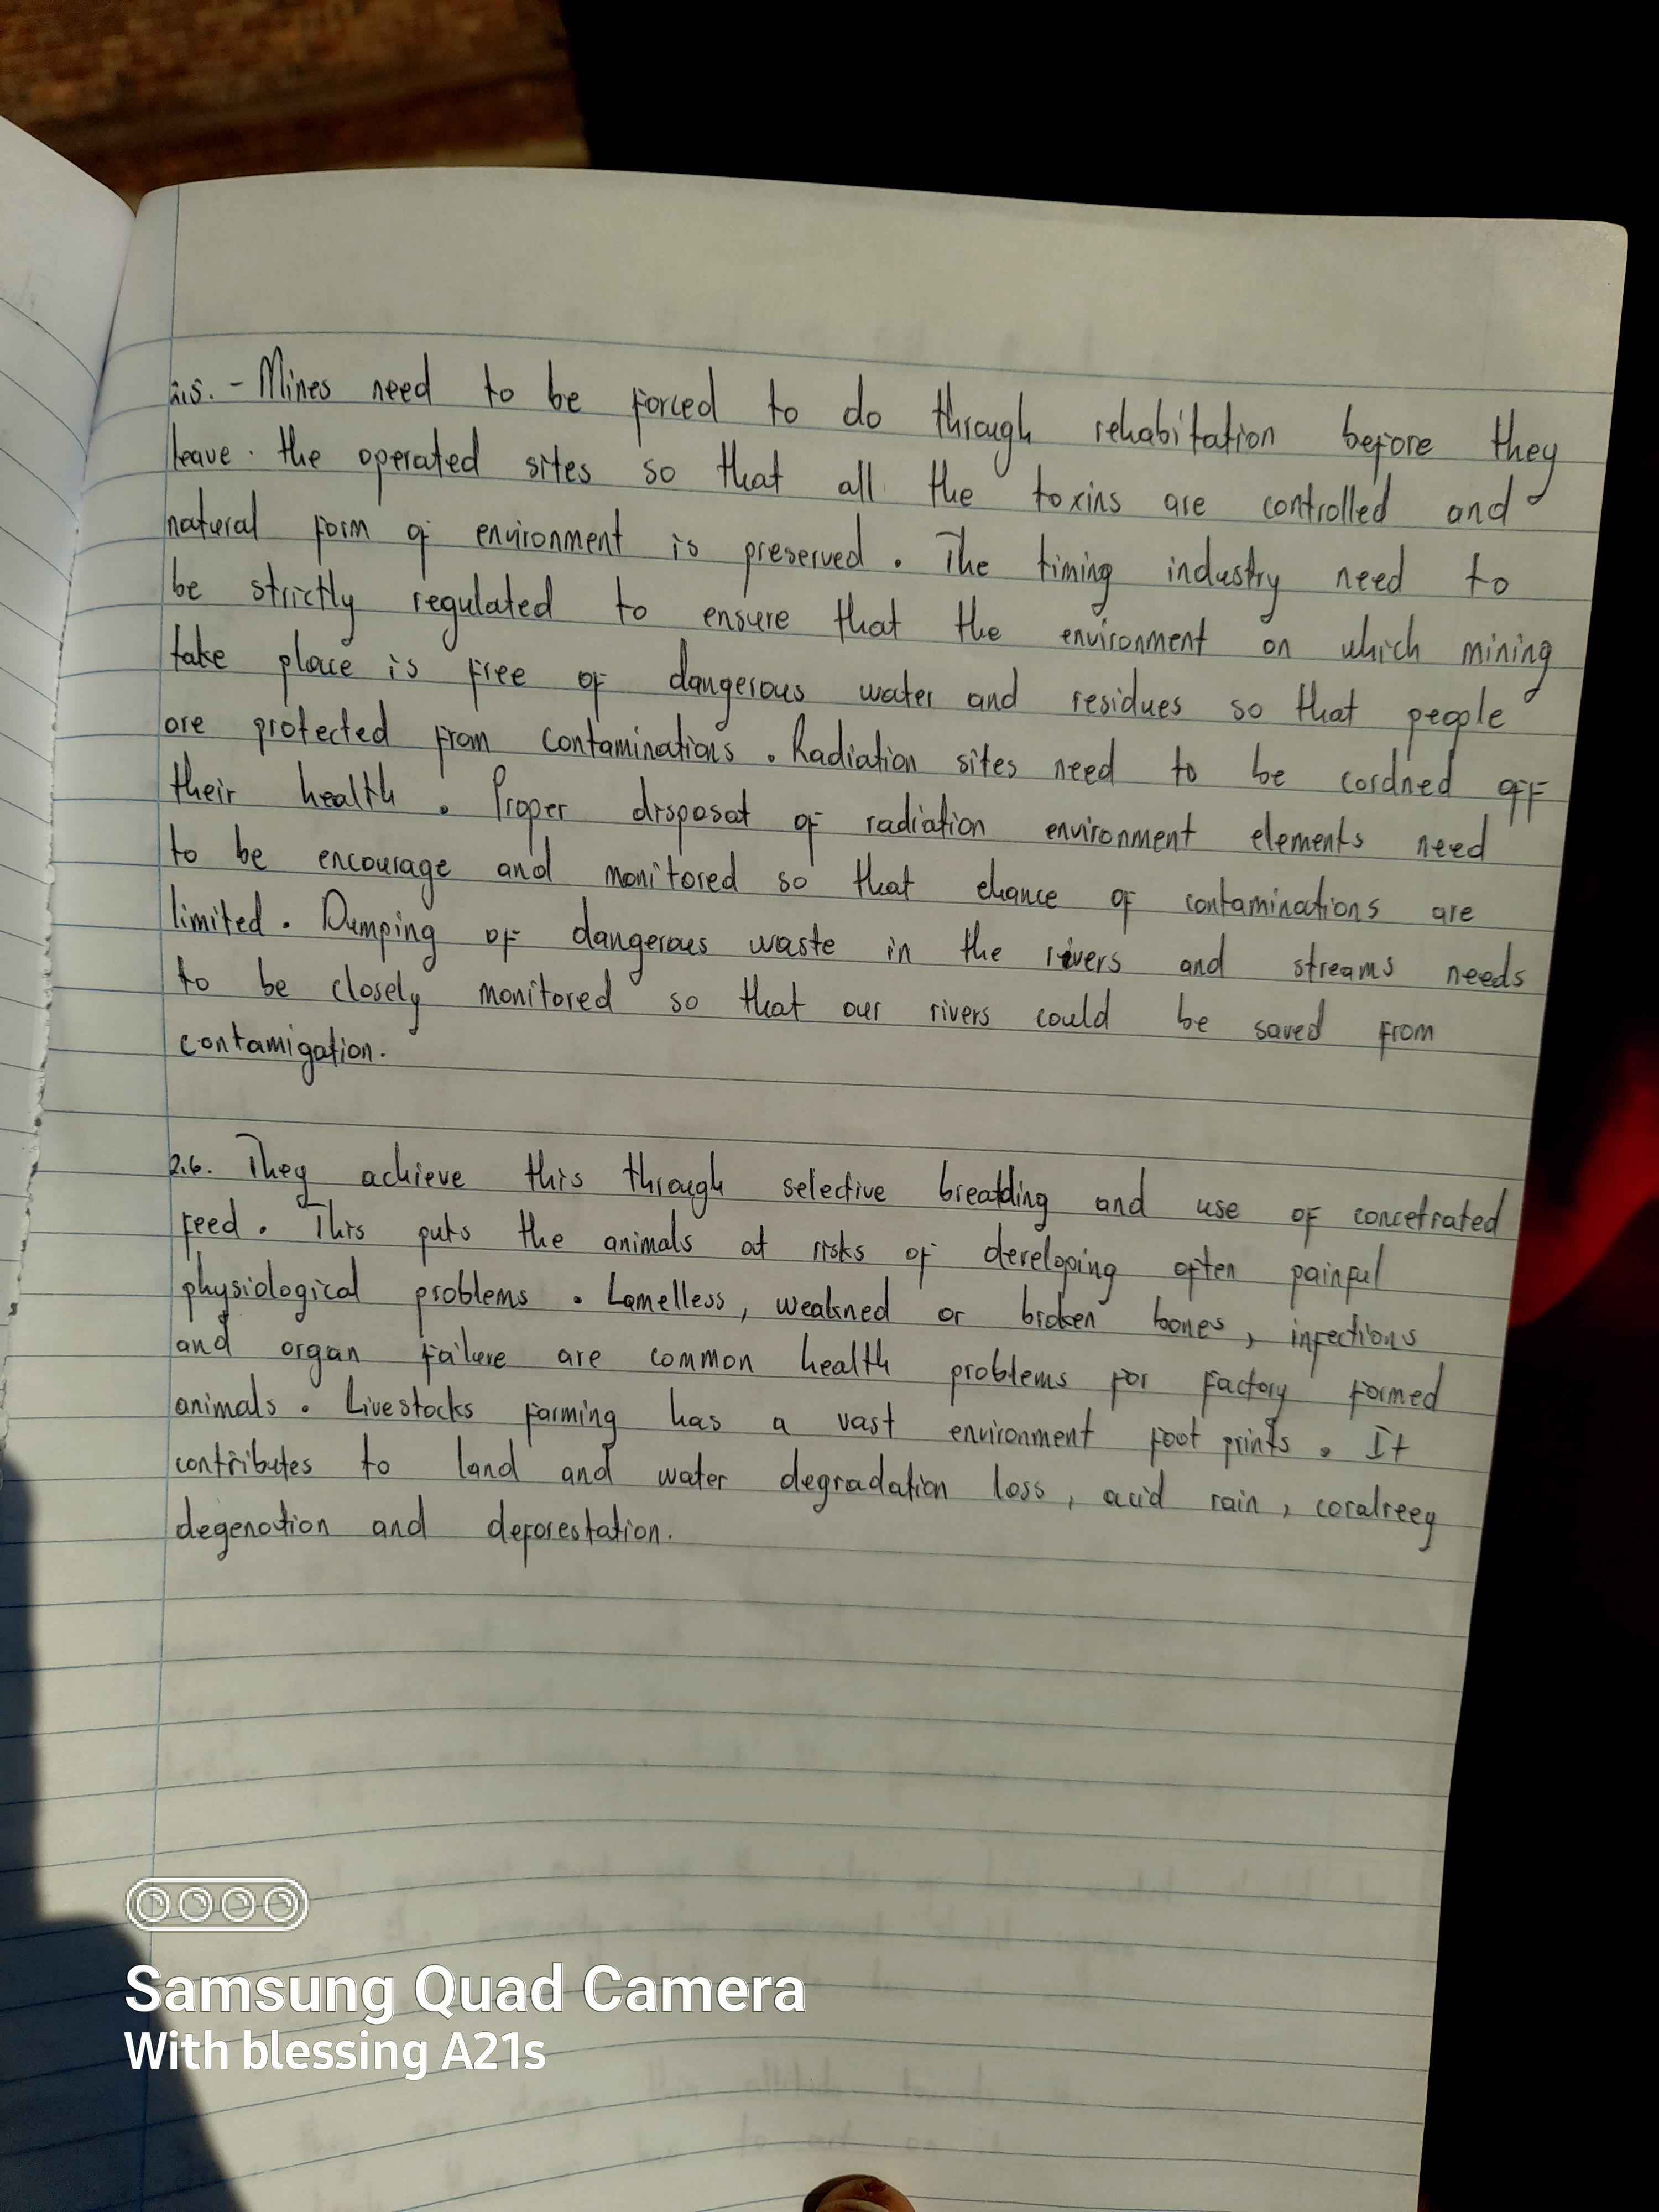 2.5. - Mines need to be forced to do through rehabitation before they
leave. the operated sites so that all the toxins are controlled and
natural form of environment is preserved. The timing industry need to
be strictly regulated to ensure that the environment on which mining
take place is free of dangerous water and residues so that people
are protected from contaminations. Radiation sites need to be cordned off
their health. Proper disposal of radiation environment elements need
to be encourage and monitored so that chance of contaminations are
limited. Dumping of dangerous waste in the rivers and streams needs
to be closely monitored so that our rivers could be saved from
contamigation.
2.6. They achieve this through selective breatding and use of concetrated
feed. This puts the animals at risks of developing often painful
physiological problems. Lamelless, weakned or broken bones, infections
and organ failure are common health problems for factory formed
animals. Livestocks farming has a vast environment foot prints. It
contributes to land and water degradation loss, acid rain, coralreef
degenation and deforestation.
Samsung Quad Camera
With blessing A21s